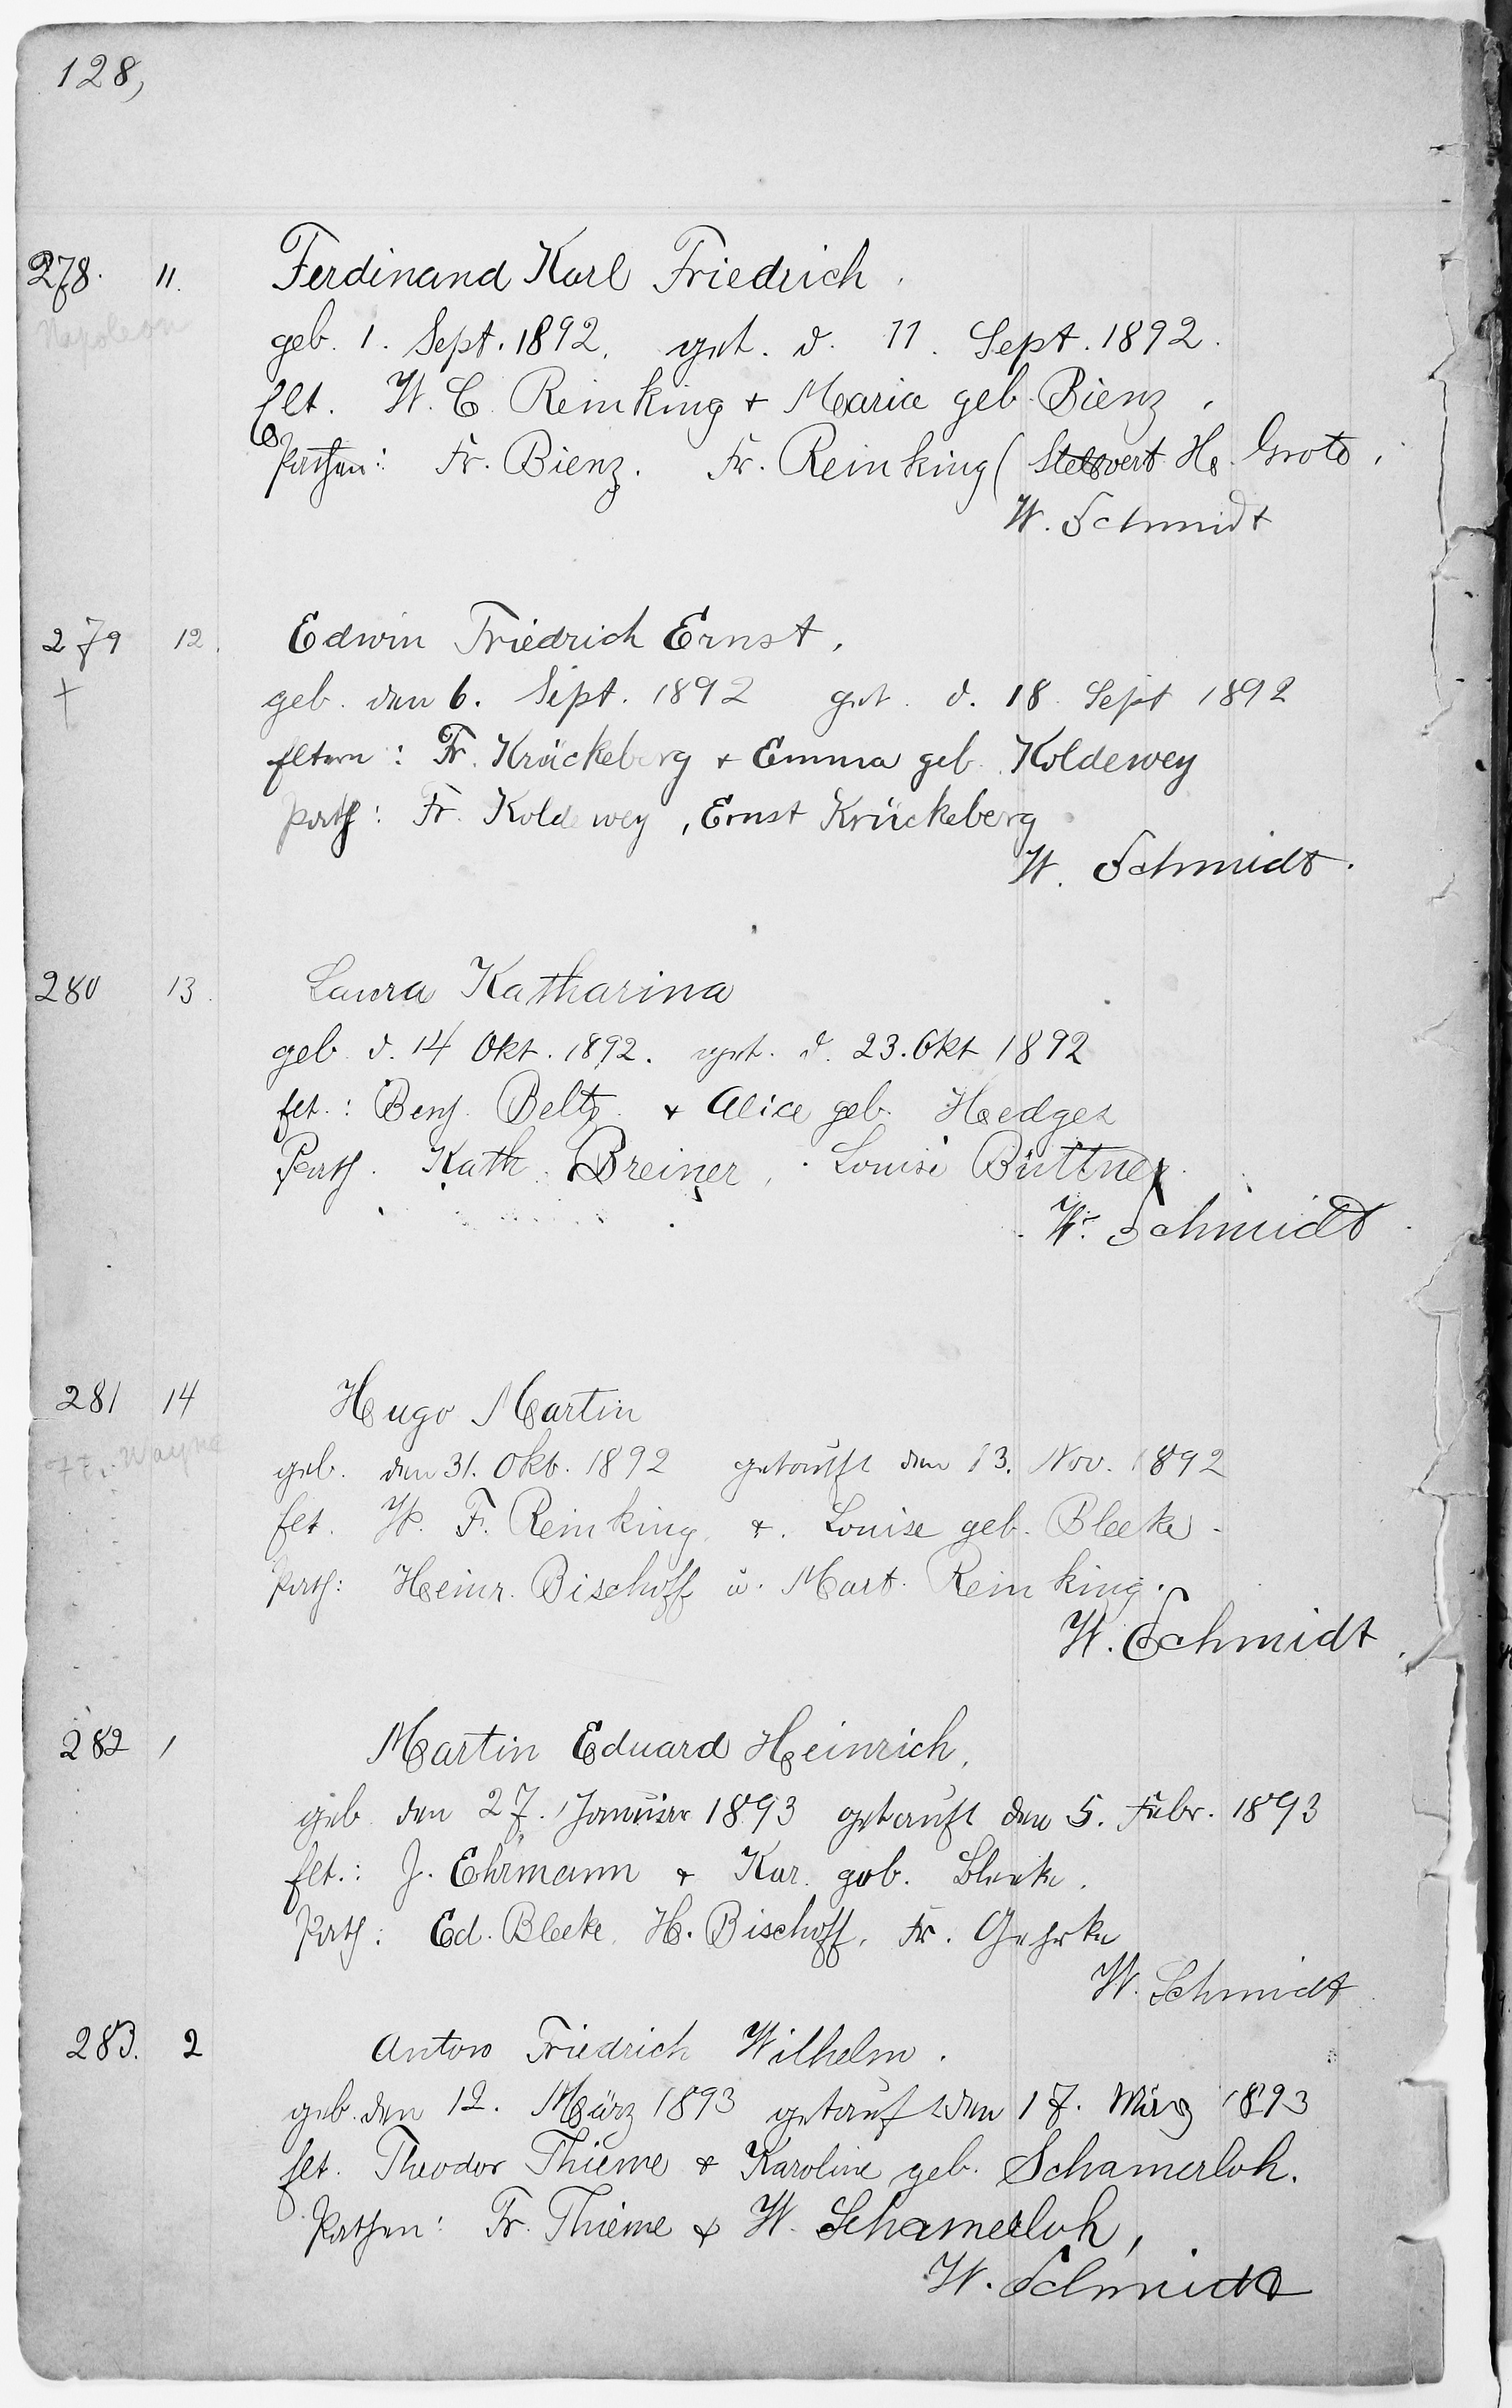 128,
278. 11. Ferdinand Karl Friedrich.
Napoleon
geb. 1. Sept. 1892. get. d. 11. Sept. 1892.
Elt. W. C. Reinking + Maria geb. Bienz.
Pathen: Fr. Bienz. Fr. Reinking (Stellvert. H. Grote.
W. Schmidt
279 12. Edwin Friedrich Ernst.
+
geb. den 6. Sept. 1892 get. d. 18. Sept 1892
Eltern: Fr. Krückeberg + Emma geb. Koldewey
Path: Fr. Koldewey, Ernst Krückeberg
W. Schmidt.
280 13. Laura Katharina
geb. d. 14 Okt. 1892. get. d. 23. Okt 1892
Elt.: Benj. Beltz + Alice geb. Hedges
Path. Kath. Breiner, Louise Büttner.
W. Schmidt
281 14 Hugo Martin
Ft. Wayne
geb. den 31. Okt. 1892 getauft den 13. Nov. 1892
Elt. W. F. Reinking, +. Louise geb. Bleeke.
Path: Heinr. Bischoff u. Mart. Reinking.
W. Schmidt.
282 1 Martin Eduard Heinrich.
geb. den 27. Januar 1893 getauft den 5. Febr. 1893
Elt.: J. Ehrmann + Kar. geb. Bleeke.
Path: Ed. Bleeke, H. Bischoff, Fr. Gehrke
W. Schmidt
283. 2 Anton Friedrich Wilhelm.
geb. den 12. März 1893 getauft den 17. März 1893
Elt. Theodor Thieme + Karoline geb. Schamerloh.
Pathen: Fr. Thieme + W. Schamerloh,
W. Schmidt